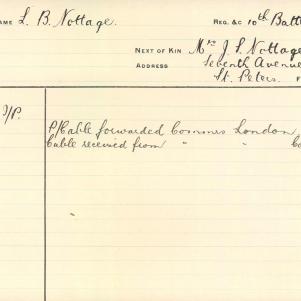 NAME L. B. Nottage. REG. &C 10th Batt
NEXT OF KIN Mrs J. S. Nottage
ADDRESS Seventh Avenue
St. Peters.
I/P.
P/Cable forwarded Commes London
Cable received from " "